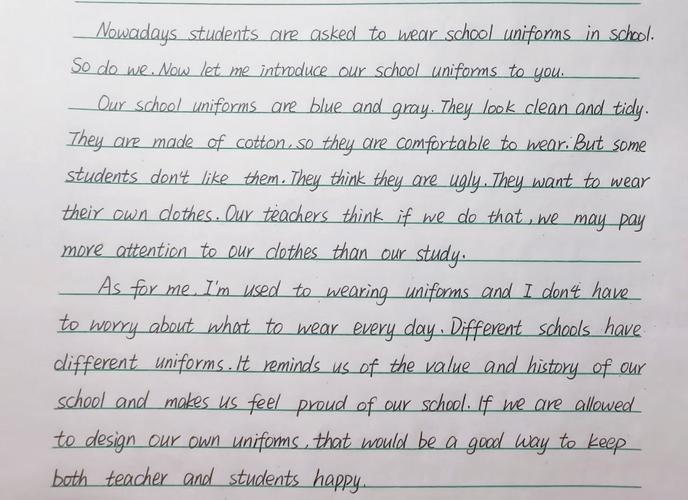 Nowadays students are asked to wear school uniforms in school.
So do we. Now let me introduce our school uniforms to you.
Our school uniforms are blue and gray. They look clean and tidy.
They are made of cotton, so they are comfortable to wear. But some
students don't like them. They think they are ugly. They want to wear
their own clothes. Our teachers think if we do that, we may pay
more attention to our clothes than our study.
As for me, I'm used to wearing uniforms and I don't have
to worry about what to wear every day. Different schools have
different uniforms. It reminds us of the value and history of our
school and makes us feel proud of our school. If we are allowed
to design our own uniforms, that would be a good way to keep
both teacher and students happy.